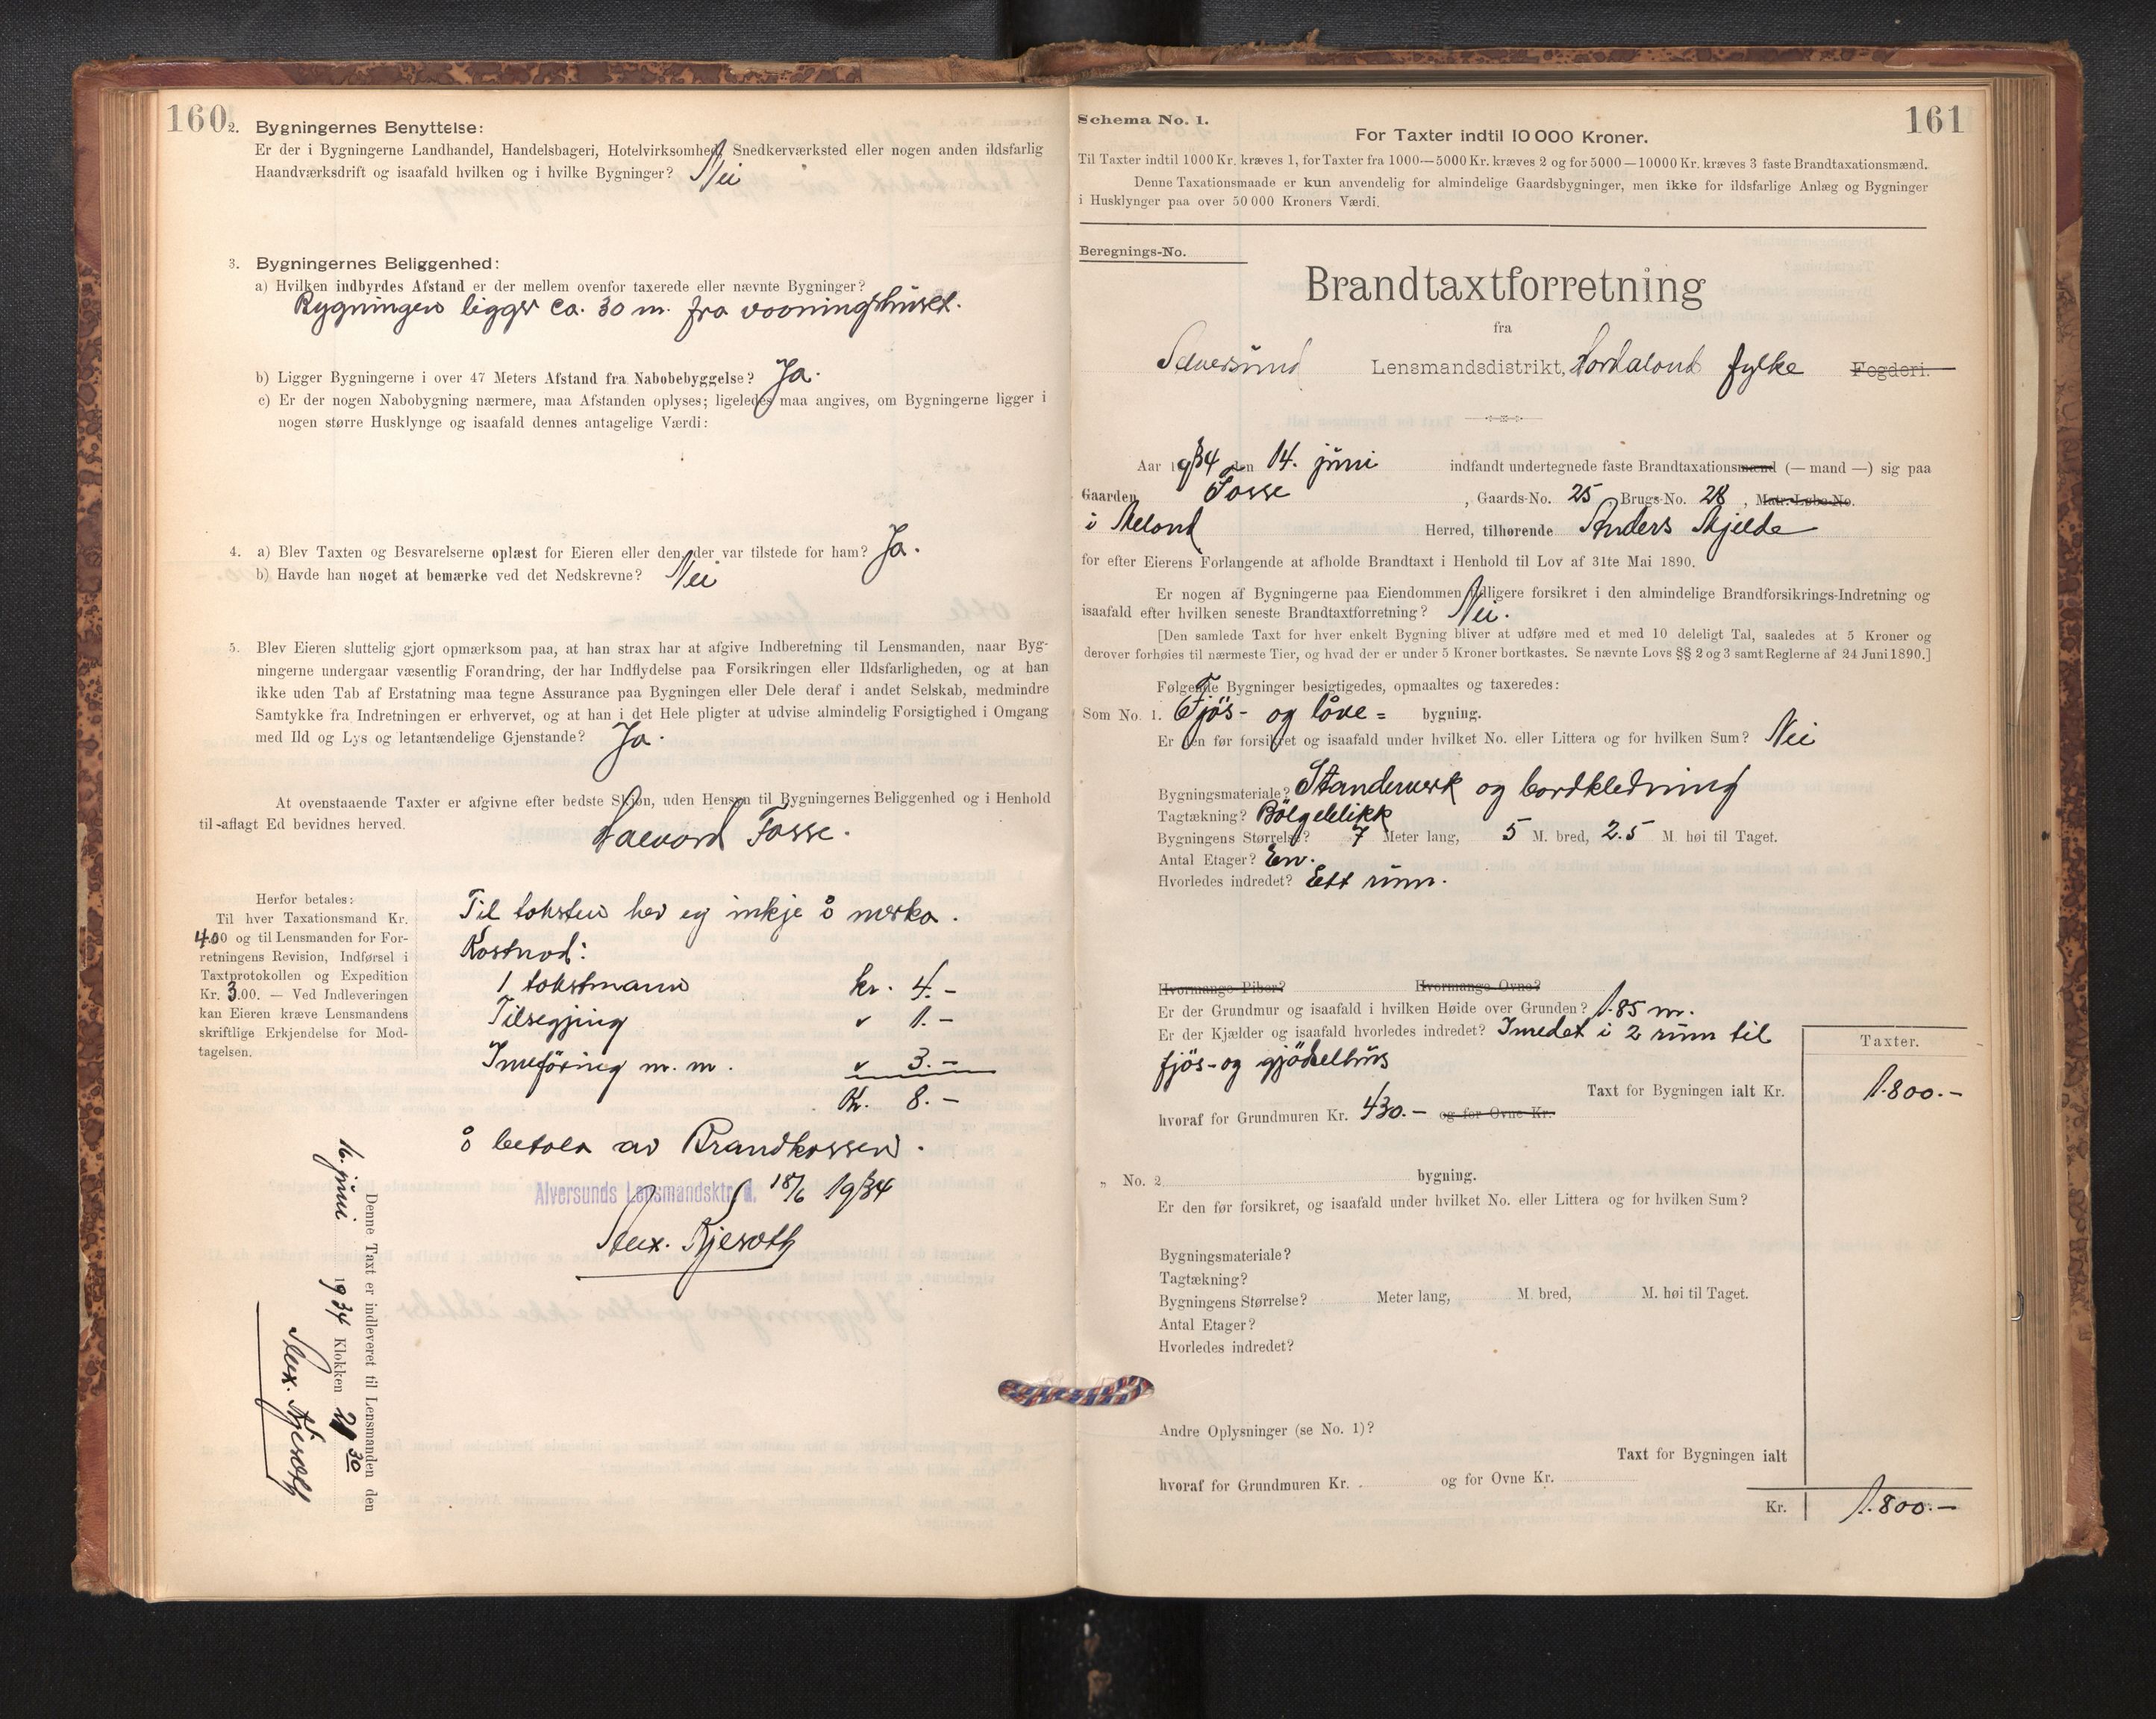 160
2. Bygningernes Benyttelse:
Er der i Bygningerne Landhandel, Handelsbageri, Hotelvirksomhed, Snedkerværksted eller nogen anden ildsfarlig
Haandværksdrift og isaafald hvilken og i hvilke Bygninger? Nei
3. Bygningernes Beliggenhed:
a) Hvilken indbyrdes Afstand er der mellem ovenfor taxerede eller nævnte Bygninger?
Bygningen ligger ca. 30 m. fra vaaningshuset.
b) Ligger Bygningerne i over 47 Meters Afstand fra Nabobebyggelse? Ja.
c) Er der nogen Nabobygning nærmere, maa Afstanden oplyses; ligeledes maa angives, om Bygningerne ligger i
nogen større Husklynge og isaafald dennes antagelige Værdi:
4. a) Blev Taxten og Besvarelserne oplæst for Eieren eller den, der var tilstede for ham? Ja.
b) Havde han noget at bemærke ved det Nedskrevne? Nei
5. Blev Eieren sluttelig gjort opmærksom paa, at han strax har at afgive Indberetning til Lensmanden, naar Byg-
ningerne undergaar væsentlig Forandring, der har Indflydelse paa Forsikringen eller Ildsfarligheden, og at han
ikke uden Tab af Erstatning maa tegne Assurance paa Bygningen eller Dele deraf i andet Selskab, medmindre
Samtykke fra Indretningen er erhvervet, og at han i det Hele pligter at udvise almindelig Forsigtighed i Omgang
med Ild og Lys og letantændelige Gjenstande? Ja.
At ovenstaaende Taxter er afgivne efter bedste Skjøn, uden Hensyn til Bygningernes Beliggenhed og i Henhold
til aflagt Ed bevidnes herved.
Halvard Fosse.
Herfor betales:
Til hver Taxationsmand Kr.
4.00 og til Lensmanden for For-
retningens Revision, Indførsel i
Taxtprotokollen og Expedition
Kr. 3.00. — Ved Indleveringen
kan Eieren kræve Lensmandens
skriftlige Erkjendelse for Mod-
tagelsen.
Til taksten hev eg inkje å merka.
Kostnad:
1 takstmann kr. 4.-
Tilsegjing " 1.-
Innføring m. m. " 3.-
Kr. 8.-
å betala av Brandkassen.
Alversunds Lensmandsktr. d. 18/6 1934
Alex. Kjeroth
Denne Taxt er indleveret til Lensmanden den
16. juni 1934 Klokken 21 30
Alex. Kjeroth
161
Schema No. 1.
For Taxter indtil 10 000 Kroner.
Til Taxter indtil 1000 Kr. kræves 1, for Taxter fra 1000—5000 Kr. kræves 2 og for 5000—10000 Kr. kræves 3 faste Brandtaxationsmænd.
Denne Taxationsmaade er kun anvendelig for almindelige Gaardsbygninger, men ikke for ildsfarlige Anlæg og Bygninger
i Husklynger paa over 50 000 Kroners Værdi.
Beregnings-No.
Brandtaxtforretning
fra
Alversund Lensmandsdistrikt, Hordaland fylke Fogderi.
Aar 1934 den 14. juni indfandt undertegnede faste Brandtaxationsmænd (— mand —) sig paa
Gaarden Fosse, Gaards-No. 25 Brugs-No. 28, Matr.-Løbe-No.
i Meland Herred, tilhørende Anders Mjelde
for efter Eierens Forlangende at afholde Brandtaxt i Henhold til Lov af 31te Mai 1890.
Er nogen af Bygningerne paa Eiendommen tidligere forsikret i den almindelige Brandforsikrings-Indretning og
isaafald efter hvilken seneste Brandtaxtforretning? Nei.
[Den samlede Taxt for hver enkelt Bygning bliver at udføre med et med 10 deleligt Tal, saaledes at 5 Kroner og
derover forhøies til nærmeste Tier, og hvad der er under 5 Kroner bortkastes. Se nævnte Lovs §§ 2 og 3 samt Reglerne af 24 Juni 1890.]
Følgende Bygninger besigtigedes, opmaaltes og taxeredes:
Som No. 1. Fjøs- og løve= bygning.
Er den før forsikret og isaafald under hvilket No. eller Littera og for hvilken Sum? Nei
Bygningsmateriale? Standverk og bordkledning
Tagtækning? Bølgeblikk
Bygningens Størrelse? 7 Meter lang, 5 M. bred, 2.5 M. høi til Taget.
Antal Etager? En.
Hvorledes indredet? Ett rum.
Hvormange Piber? Hvormange Ovne?
Er der Grundmur og isaafald i hvilken Høide over Grunden? 1.85 m.
Er der Kjælder og isaafald hvorledes indredet? Innredet i 2 rum til
fjøs- og gjødselhus
Taxter.
Taxt for Bygningen ialt Kr. 1.800.-
hvoraf for Grundmuren Kr. 430.- og for Ovne Kr.
„ No. 2 bygning.
Er den før forsikret, og isaafald under hvilket No. eller Littera og for hvilken Sum?
Bygningsmateriale?
Tagtækning?
Bygningens Størrelse? Meter lang, M. bred, M. høi til Taget.
Antal Etager?
Hvorledes indredet?
Andre Oplysninger (se No. 1)?
Taxt for Bygningen ialt
hvoraf for Grundmuren Kr. og for Ovne Kr.
Kr. 1.800.-